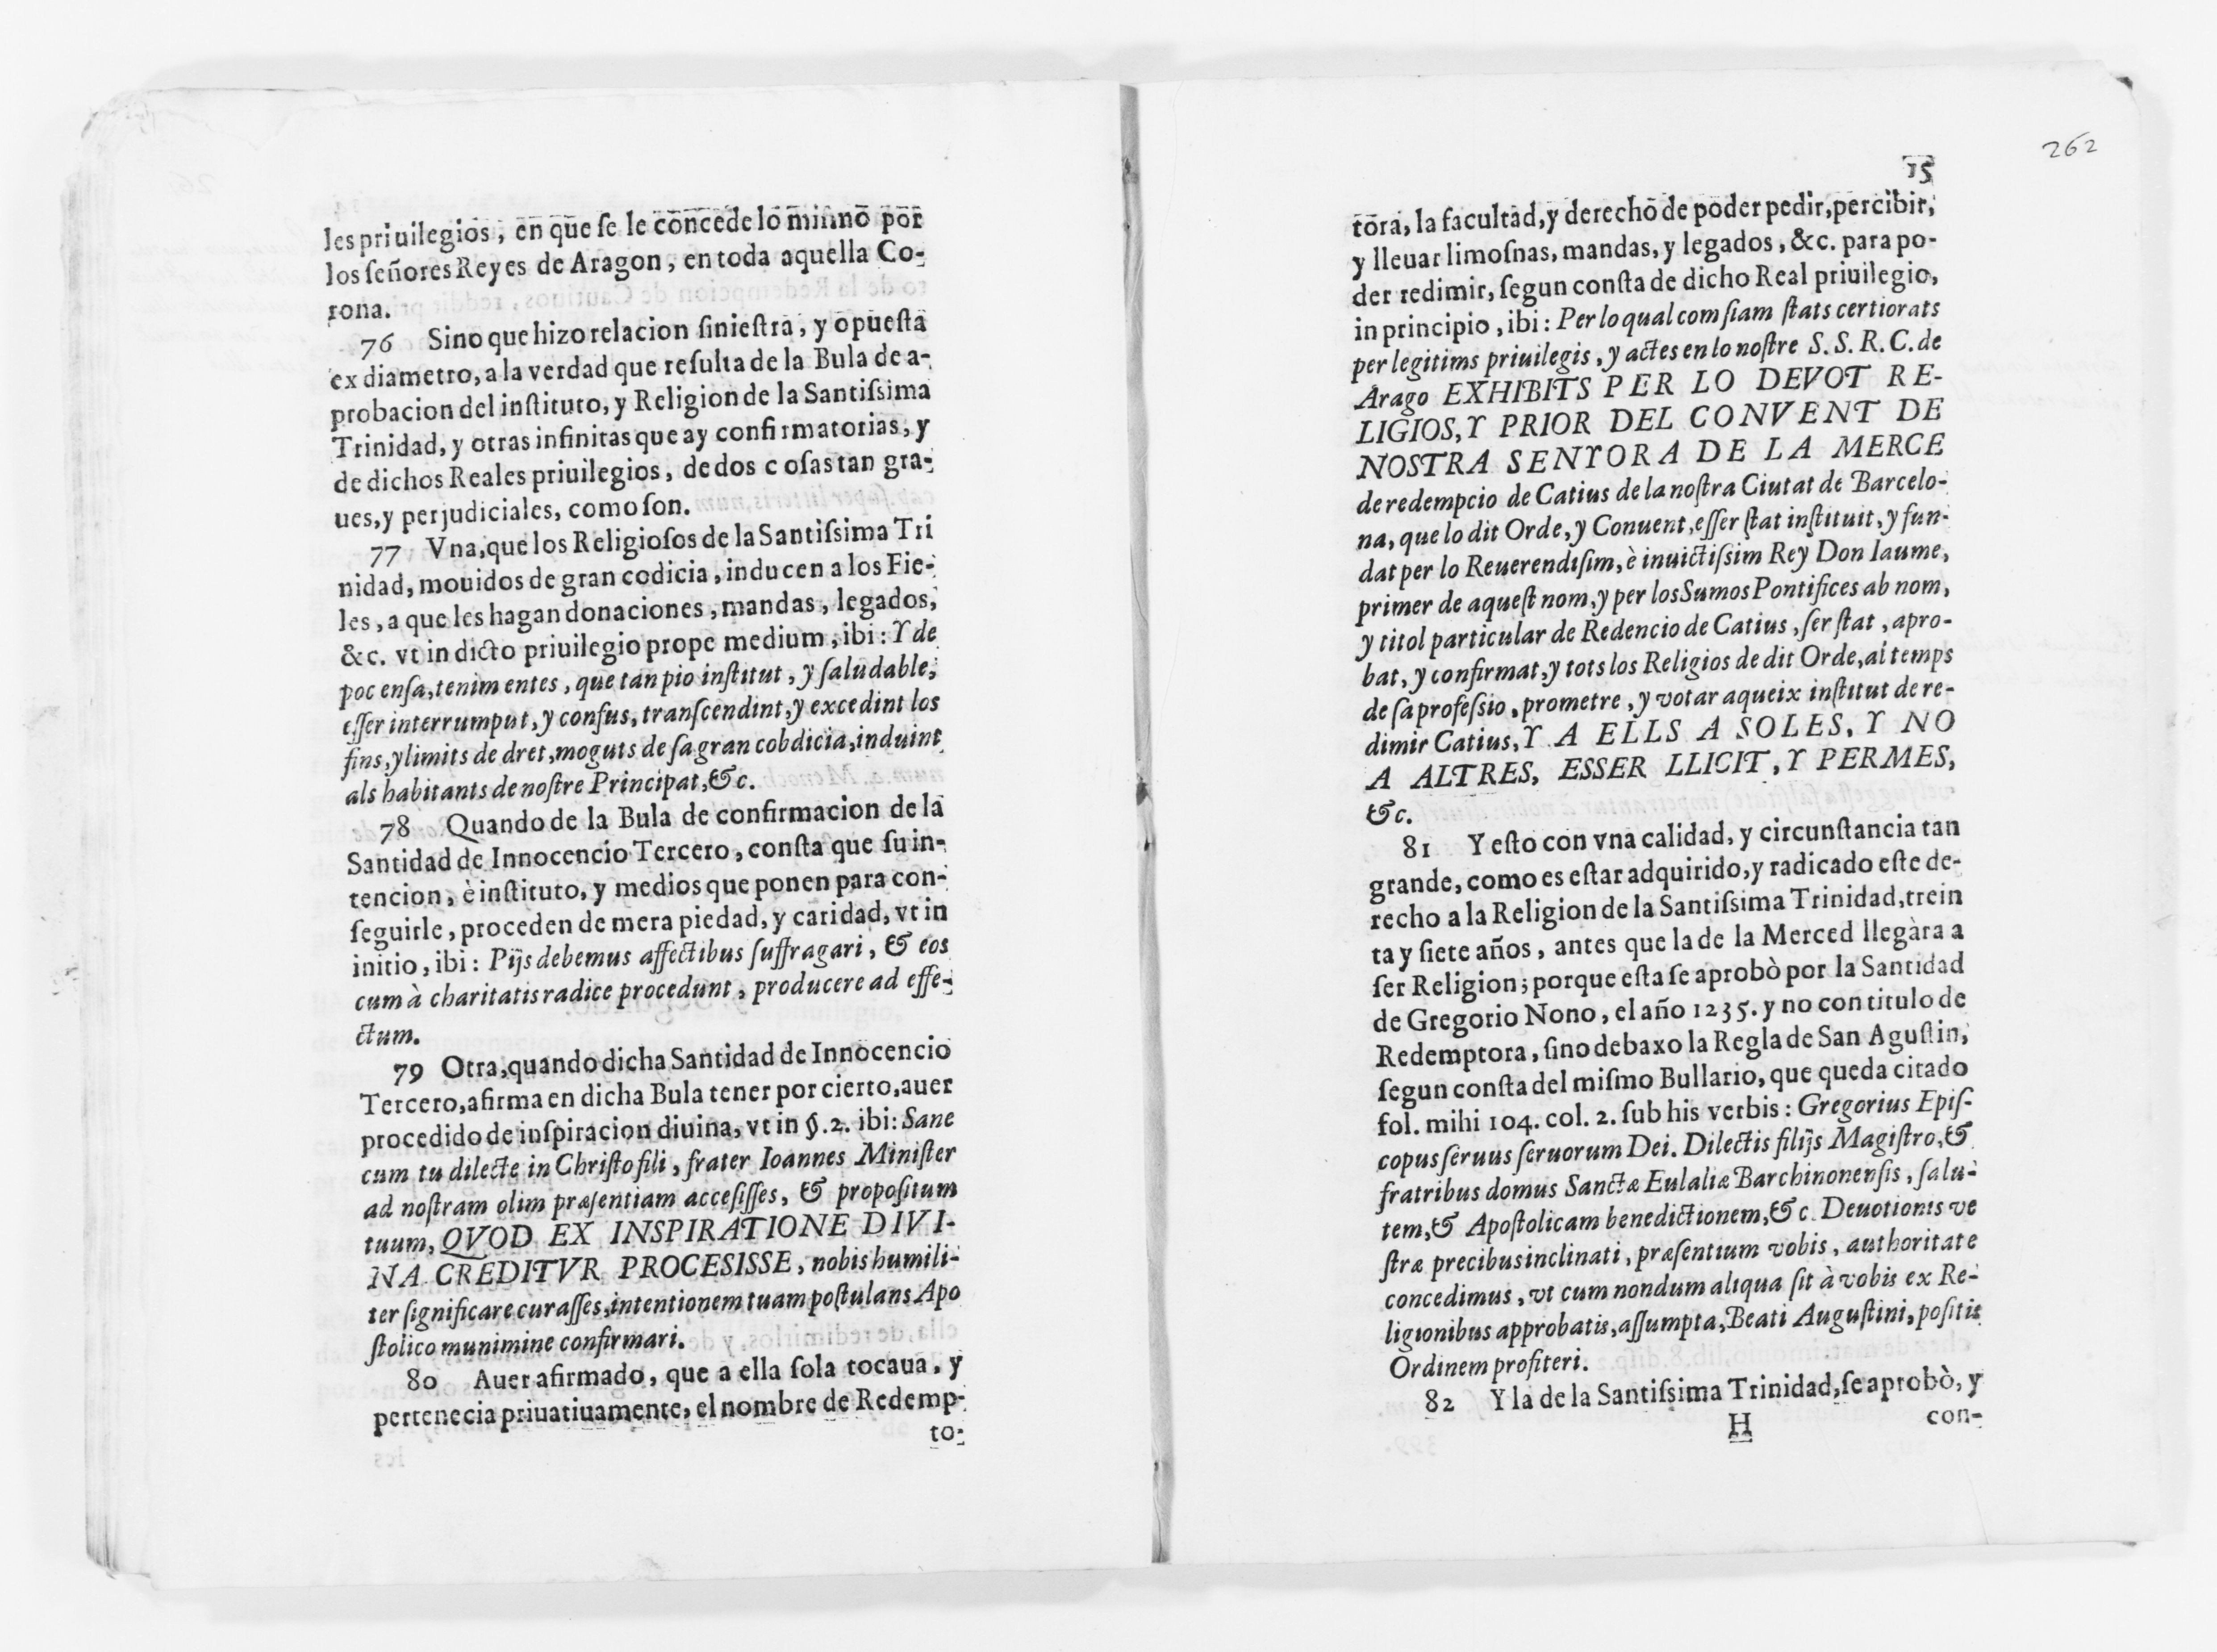 les priuilegios, en que ſe le concede lo miſmo por
los ſeñores Reyes de Aragon, en toda aquella Co-
rona.
76 Sino que hizo relacion ſinieſtra, y opueſta
ex diametro, a la verdad que reſulta de la Bula de a-
probacion del inſtituto, y Religion de la Santiſsima
Trinidad, y otras infinitas que ay confirmatorias, y
de dichos Reales priuilegios, de dos coſas tan gra-
ues, y perjudiciales, como ſon.
77 Vna, que los Religioſos de la Santiſsima Tri
nidad, mouidos de gran codicia, inducen a los Fie-
les, a que les hagan donaciones, mandas, legados,
&c. vt in dicto priuilegio prope medium, ibi: Y de
poc enſa, tenim entes, que tan pio inſtitut, y ſaludable,
eſſer interrumput, y confus, tranſcendint, y excedint los
fins, y limits de dret, moguts de ſa gran cobdicia, induint
als habitants de noſtre Principat, &c.
78 Quando de la Bula de confirmacion de la
Santidad de Innocencio Tercero, conſta que ſu in-
tencion, è inſtituto, y medios que ponen para con-
ſeguirle, proceden de mera piedad, y caridad, vt in
initio, ibi: Pijs debemus affectibus ſuffragari, & eos
cum à charitatis radice procedunt, producere ad effe-
ctum.
79 Otra, quando dicha Santidad de Innocencio
Tercero, afirma en dicha Bula tener por cierto, auer
procedido de inſpiracion diuina, vt in §. 2. ibi: Sane
cum tu dilecte in Chriſto fili, frater Ioannes Miniſter
ad noſtram olim præſentiam acceſiſſes, & propoſitum
tuum, QVOD EX INSPIRATIONE DIVI-
NA CREDITVR PROCESISSE, nobis humili-
ter ſignificare curaſſes, intentionem tuam poſtulans Apo
ſtolico munimine confirmari.
80 Auer afirmado, que a ella ſola tocaua, y
pertenecia priuatiuamente, el nombre de Redemp-
to-
262
15
tora, la facultad, y derecho de poder pedir, percibir,
y lleuar limoſnas, mandas, y legados, &c. para po-
der redimir, ſegun conſta de dicho Real priuilegio,
in principio, ibi: Per lo qual com ſiam ſtats certiorats
per legitims priuilegis, y actes en lo noſtre S. S. R. C. de
Arago EXHIBITS PER LO DEVOT RE-
LIGIOS, Y PRIOR DEL CONVENT DE
NOSTRA SENYORA DE LA MERCE
de redempcio de Catius de la noſtra Ciutat de Barcelo-
na, que lo dit Orde, y Conuent, eſſer ſtat inſtituit, y fun-
dat per lo Reuerendiſim, è inuictiſsim Rey Don Iaume,
primer de aqueſt nom, y per los Sumos Pontifices ab nom,
y titol particular de Redencio de Catius, ſer ſtat, apro-
bat, y confirmat, y tots los Religios de dit Orde, al temps
de ſa profeſsio, prometre, y votar aqueix inſtitut de re-
dimir Catius, Y A ELLS A SOLES, Y NO
A ALTRES, ESSER LLICIT, Y PERMES,
&c.
81 Y eſto con vna calidad, y circunſtancia tan
grande, como es eſtar adquirido, y radicado eſte de-
recho a la Religion de la Santiſsima Trinidad, trein
ta y ſiete años, antes que la de la Merced llegàra a
ſer Religion; porque eſta ſe aprobò por la Santidad
de Gregorio Nono, el año 1235. y no con titulo de
Redemptora, ſino debaxo la Regla de San Aguſtin,
ſegun conſta del miſmo Bullario, que queda citado
fol. mihi 104. col. 2. ſub his verbis: Gregorius Epiſ-
copus ſeruus ſeruorum Dei. Dilectis filijs Magiſtro, &
fratribus domus Sanctæ Eulaliæ Barchinonenſis, ſalu-
tem, & Apoſtolicam benedictionem, &c. Deuotionis ve
ſtræ precibus inclinati, præſentium vobis, authoritate
concedimus, vt cum nondum aliqua ſit à vobis ex Re-
ligionibus approbatis, aſſumpta, Beati Auguſtini, poſitis
Ordinem profiteri.
82 Y la de la Santiſsima Trinidad, ſe aprobò, y
H con-